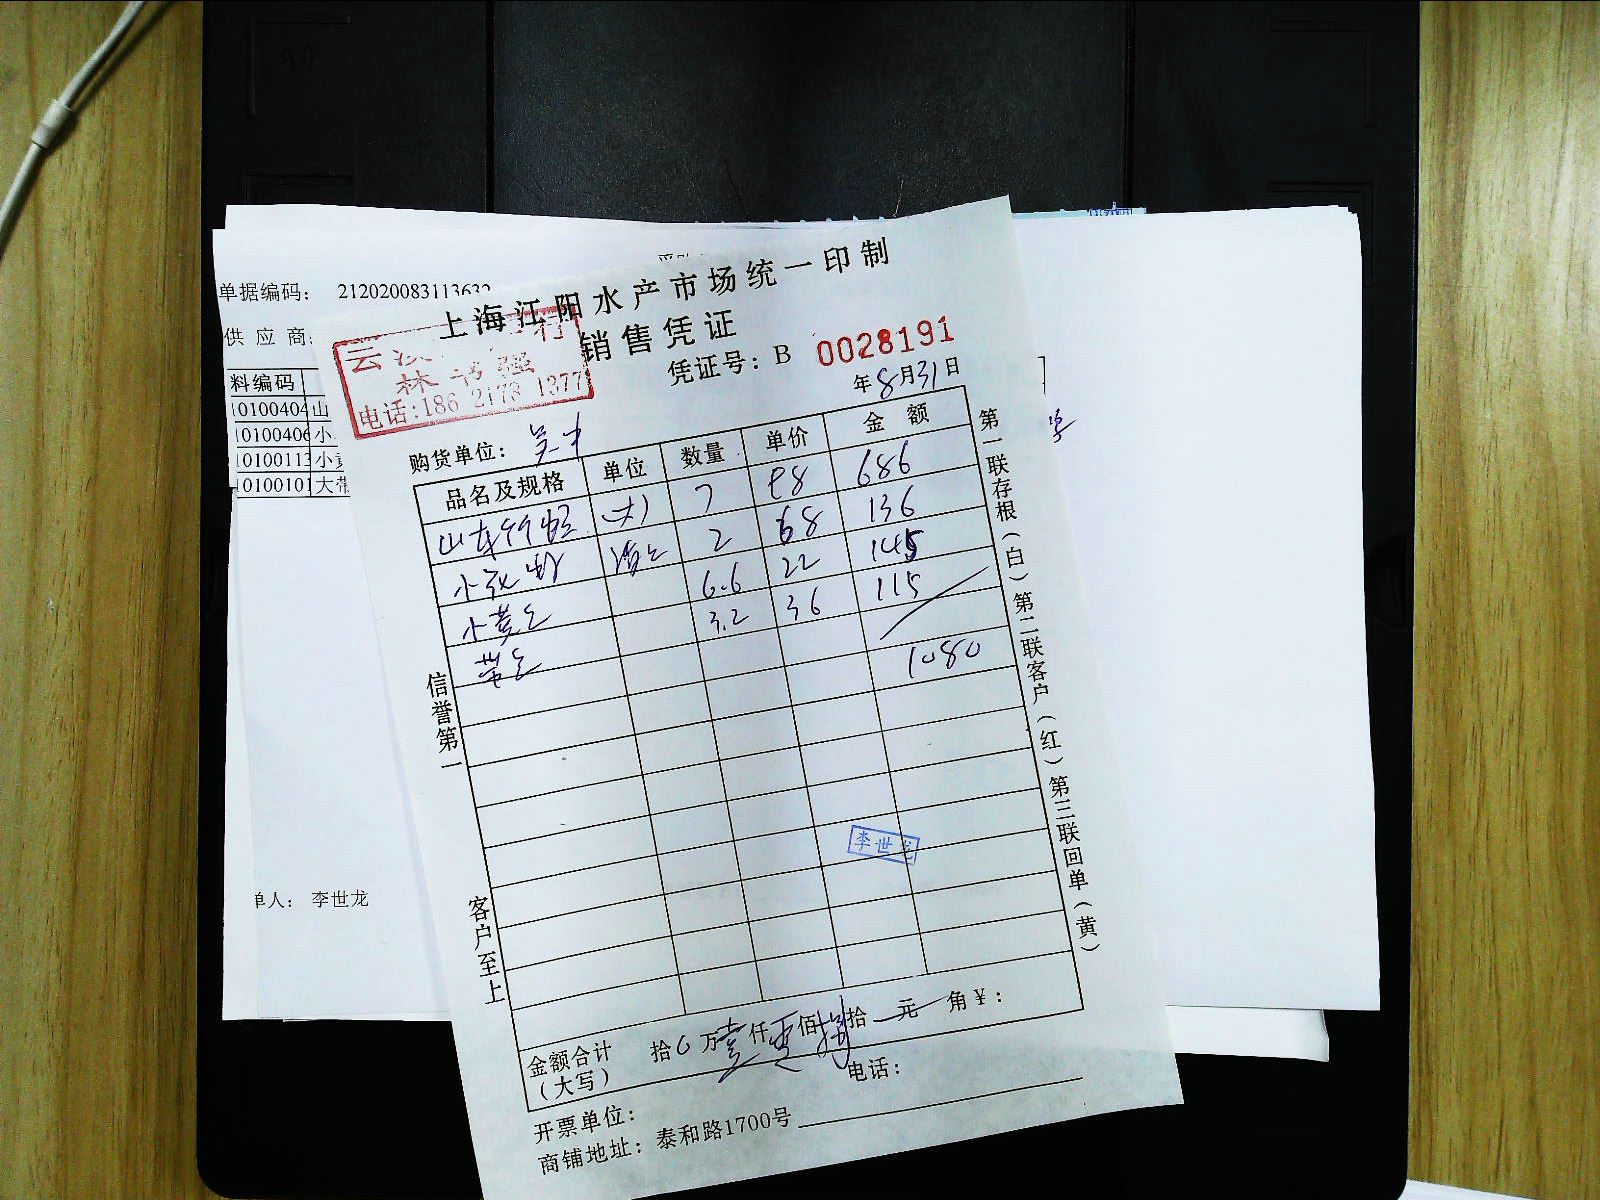 单据编码： 212020083113632
供 应 商：
料编码
10100404 山
10100406 小
1010011 小黄
10100101 大带
单人： 李世龙
上海江阳水产市场统一印制
销售凭证
凭证号：B 0028191
年8月31日
云
林 强
电话:186 2173 1377
购货单位：
品名及规格 单位 数量 单价 金 额
山东 (大) 7 98 686
小 2 68 136
小黄 6.6 22 145
带 3.2 36 115
1080
金额合计（大写） 拾0万壹仟零佰捌拾 元 角￥：
李世龙
电话：
开票单位：
商铺地址：泰和路1700号
信誉第一
客户至上
第一联存根（白）第二联客户（红）第三联回单（黄）